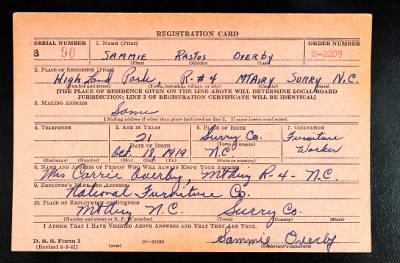 REGISTRATION CARD
SERIAL NUMBER 1. NAME (Print) ORDER NUMBER
S 90 SAMMIE Rastos Overby S-2209
(First) (Middle) (Last)
2. PLACE OF RESIDENCE (Print)
High Land Park, R-#4 MTAiry Surry N.C.
(Number and street) (Town, township, village, or city) (County) (State)
[THE PLACE OF RESIDENCE GIVEN ON THE LINE ABOVE WILL DETERMINE LOCAL BOARD
JURISDICTION; LINE 2 OF REGISTRATION CERTIFICATE WILL BE IDENTICAL]
3. MAILING ADDRESS
Same
[Mailing address if other than place indicated on line 2. If same insert word same]
4. TELEPHONE 5. AGE IN YEARS 6. PLACE OF BIRTH 7. OCCUPATION
21 Surry Co. Furniture
DATE OF BIRTH (Town or county)
Oct 18 1919 N.C. Worker
(Exchange) (Number) (Mo.) (Day) (Yr.) (State or country)
8. NAME AND ADDRESS OF PERSON WHO WILL ALWAYS KNOW YOUR ADDRESS
Mrs Carrie Overby, Mt Airy R-4- N.C.
9. EMPLOYER'S NAME AND ADDRESS
National Furniture Co.
10. PLACE OF EMPLOYMENT OR BUSINESS
Mt Airy N.C. Surry Co.
(Number and street or R. F. D. number) (Town) (County) (State)
I AFFIRM THAT I HAVE VERIFIED ABOVE ANSWERS AND THAT THEY ARE TRUE.
D. S. S. Form 1 Sammie Overby
(Revised 6-9-41) (over) (Registrant's signature)